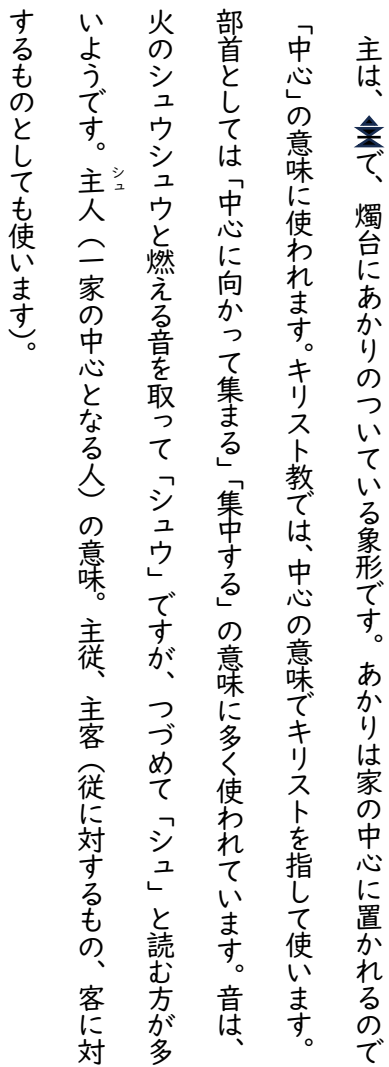 主は、で、燭台にあかりのついている象形です。あかりは家の中心に置かれるので
「中心」の意味に使われます。キリスト教では、中心の意味でキリストを指して使います。
部首としては「中心に向かって集まる」「集中する」の意味に多く使われています。音は、
火のシュウシュウと燃える音を取って「シュウ」ですが、つづめて「シュ」と読む方が多
いようです。主人（一家の中心となる人）の意味。主従、主客（従に対するもの、客に対
シュ
するものとしても使います）。